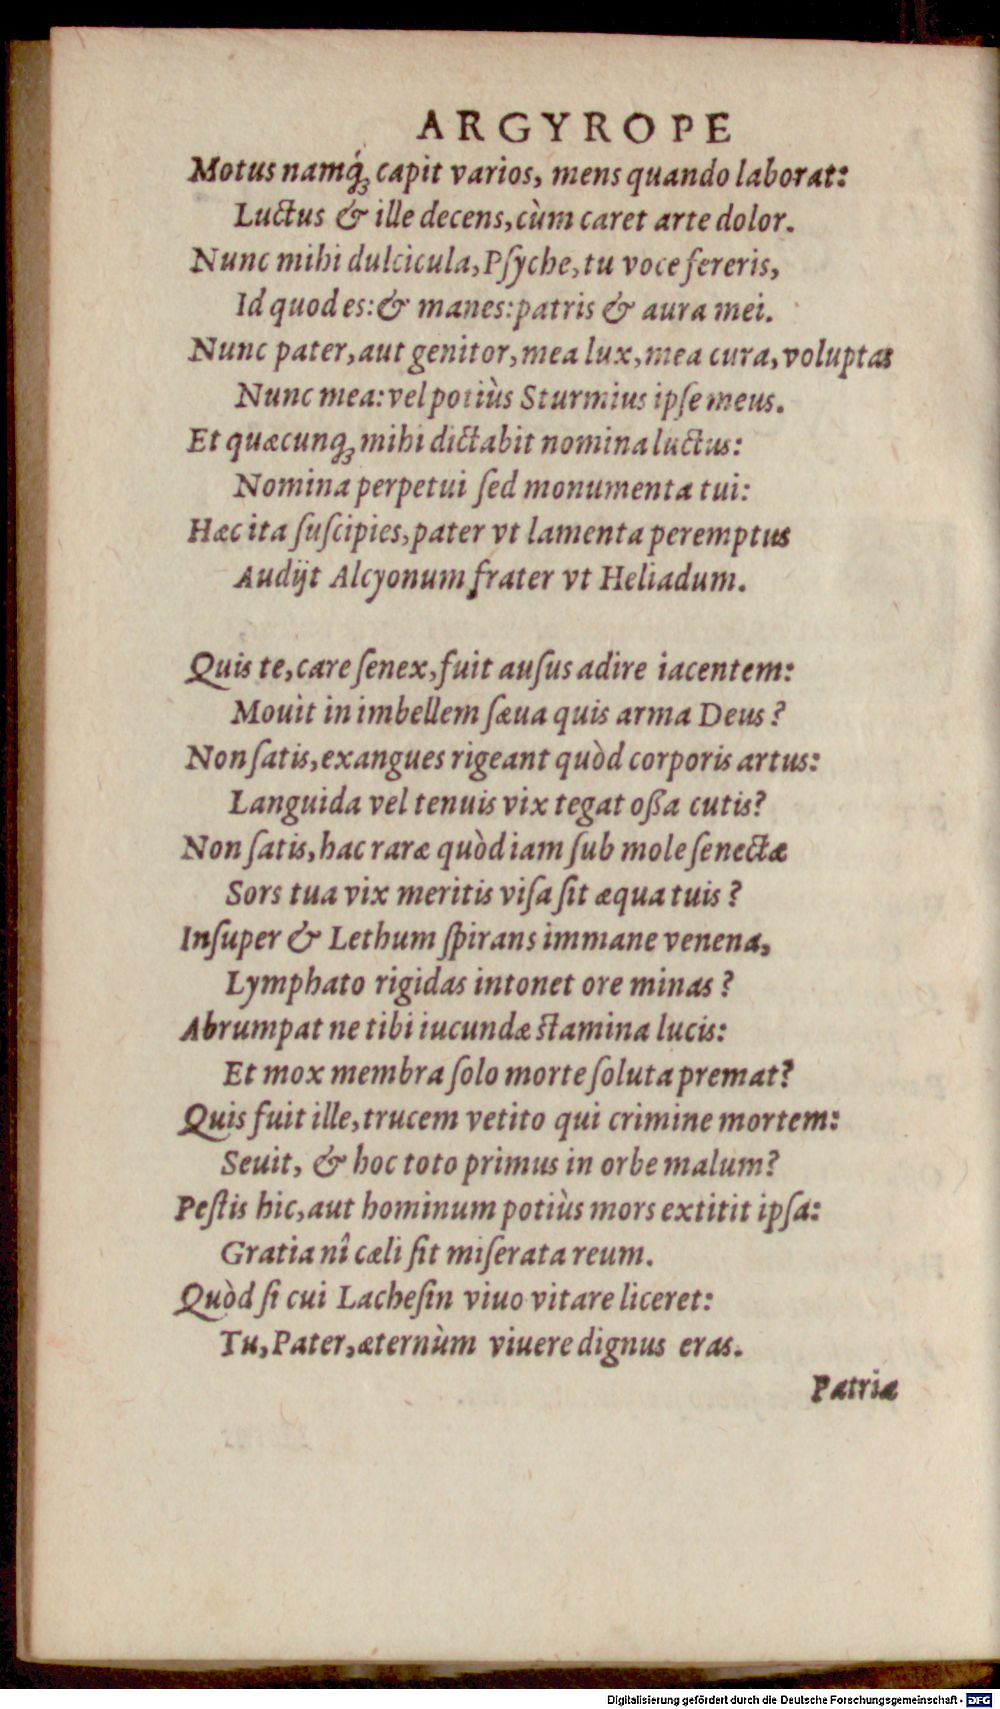 ARGYROPE
Motus namq́ꝫ capit varios, mens quando laborat:
Luctus & ille decens, cùm caret arte dolor.
Nunc mihi dulcicula, Pſyche, tu voce fereris,
Id quod es: & manes: patris & aura mei.
Nunc pater, aut genitor, mea lux, mea cura, voluptas
Nunc mea: vel potiùs Sturmius ipſe meus.
Et quæcunqꝫ mihi dictabit nomina luctus:
Nomina perpetui ſed monumenta tui:
Hæc ita ſuſcipies, pater vt lamenta peremptus
Audijt Alcyonum frater vt Heliadum.
Quis te, care ſenex, fuit auſus adire iacentem:
Mouit in imbellem ſæua quis arma Deus?
Non ſatis, exangues rigeant quòd corporis artus:
Languida vel tenuis vix tegat oſſa cutis?
Non ſatis, hac raræ quòd iam ſub mole ſenectæ
Sors tua vix meritis viſa ſit æqua tuis?
Inſuper & Lethum ſpirans immane venena,
Lymphato rigidas intonet ore minas?
Abrumpat ne tibi iucundæ ſtamina lucis:
Et mox membra ſolo morte ſoluta premat?
Quis fuit ille, trucem vetito qui crimine mortem:
Seuit, & hoc toto primus in orbe malum?
Peſtis hic, aut hominum potiùs mors extitit ipſa:
Gratia nî cæli ſit miſerata reum.
Quòd ſi cui Lacheſin viuo vitare liceret:
Tu, Pater, æternùm viuere dignus eras.
Patriæ
Digitalisierung gefördert durch die Deutsche Forschungsgemeinschaft - DFG